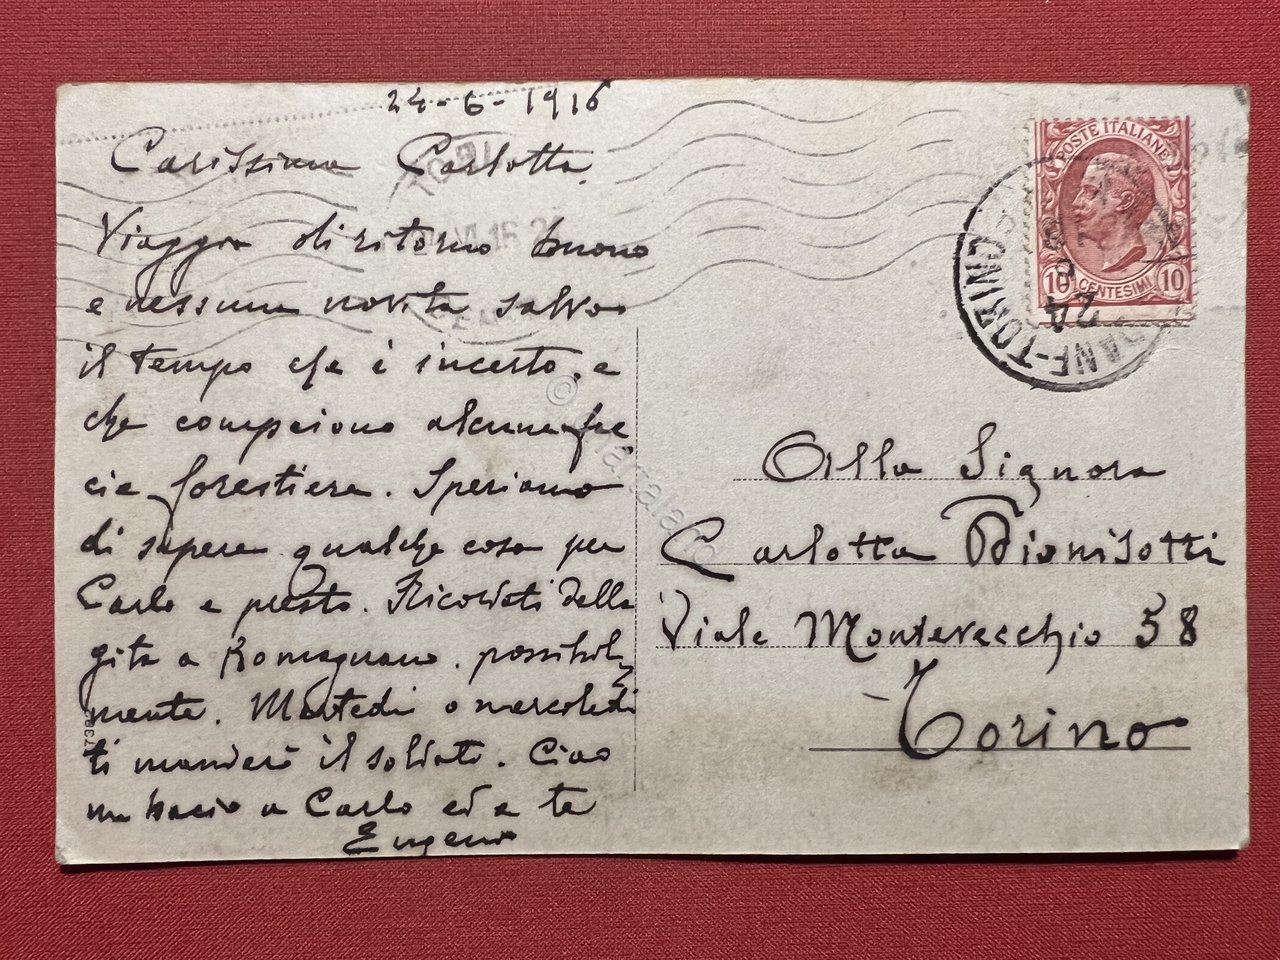 24-6-1916
Carissima Carlotta
Viaggio di ritorno buono
e nessuna novita salvo
il tempo che è incerto, e
che compaiono alcune fac
cie forestiere. Speriamo
di sapere qualche cosa per
Carlo e presto. Ricordati della
gita a Romagnano. possibil
mente. Martedi o mercoledi
ti manderò il soldato. Ciao
un bacio a Carlo ed a te
Eugenio
POSTE ITALIANE
10 CENTESIMI 10
TORINO
24
Alla Signora
Carlotta Dionisotti
Viale Montevecchio 58
Torino